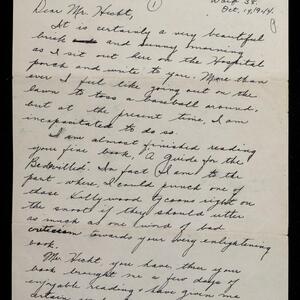 Ward 38.
Oct. 14, 1944.
Dear Mr. Hecht,
1
It is certainly a very beautiful
brisk and sunny morning
as I sit out here on the Hospital
porch and write to you. More than
ever I feel like going out on the
lawn to toss a baseball around,
but at the present time, I am
incapacitated to do so.
I am almost finished reading
your fine book, "A Guide for the
Bedevilled". In fact I am to the
part where I could punch one of
those Hollywood tycoons right on
the snoot if they should utter
as much as one word of bad
criticism towards your very enlightening
book.
Mr. Hecht, you have thru your
book brought me a few days of
enjoyable reading & have given me